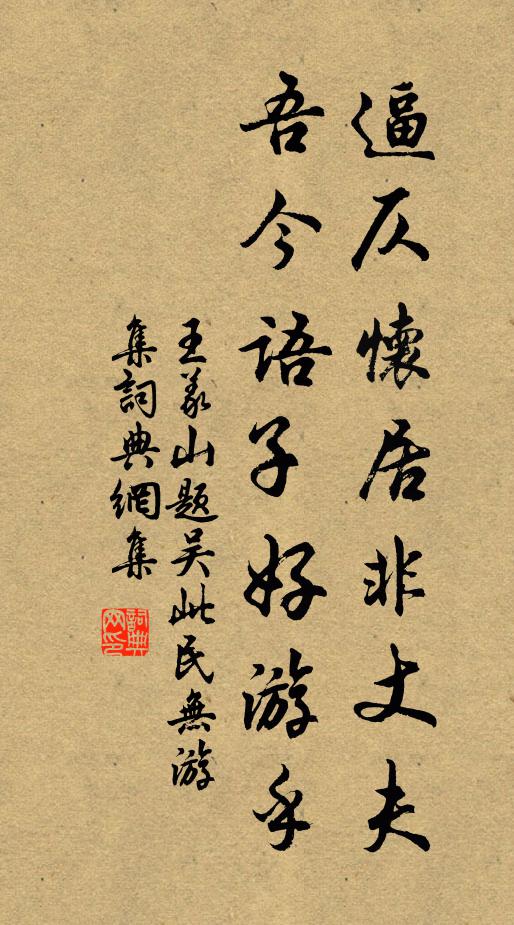 逼仄懷居非丈夫
吾今語子好游乎
王義山題吳此民無游
集詞典網集
詞典
网印